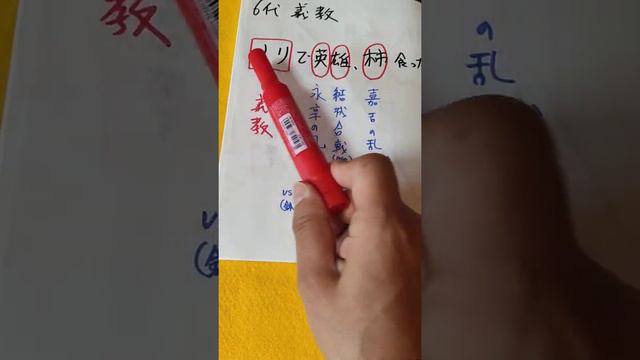 6代 義教
ノリで英雄、柿食っ
義教
永享の乱
結城合戦
嘉吉の乱
vs